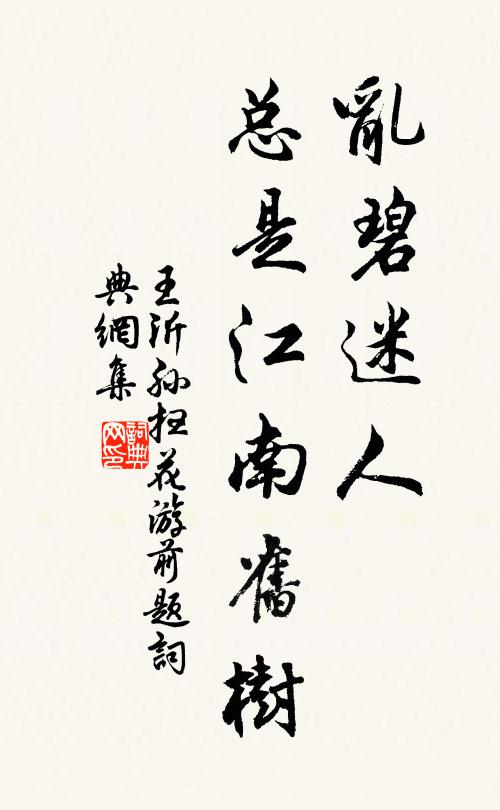 亂碧迷人
总是江南舊樹
王沂孙扫花游前题詞
典網集
詞典
网印